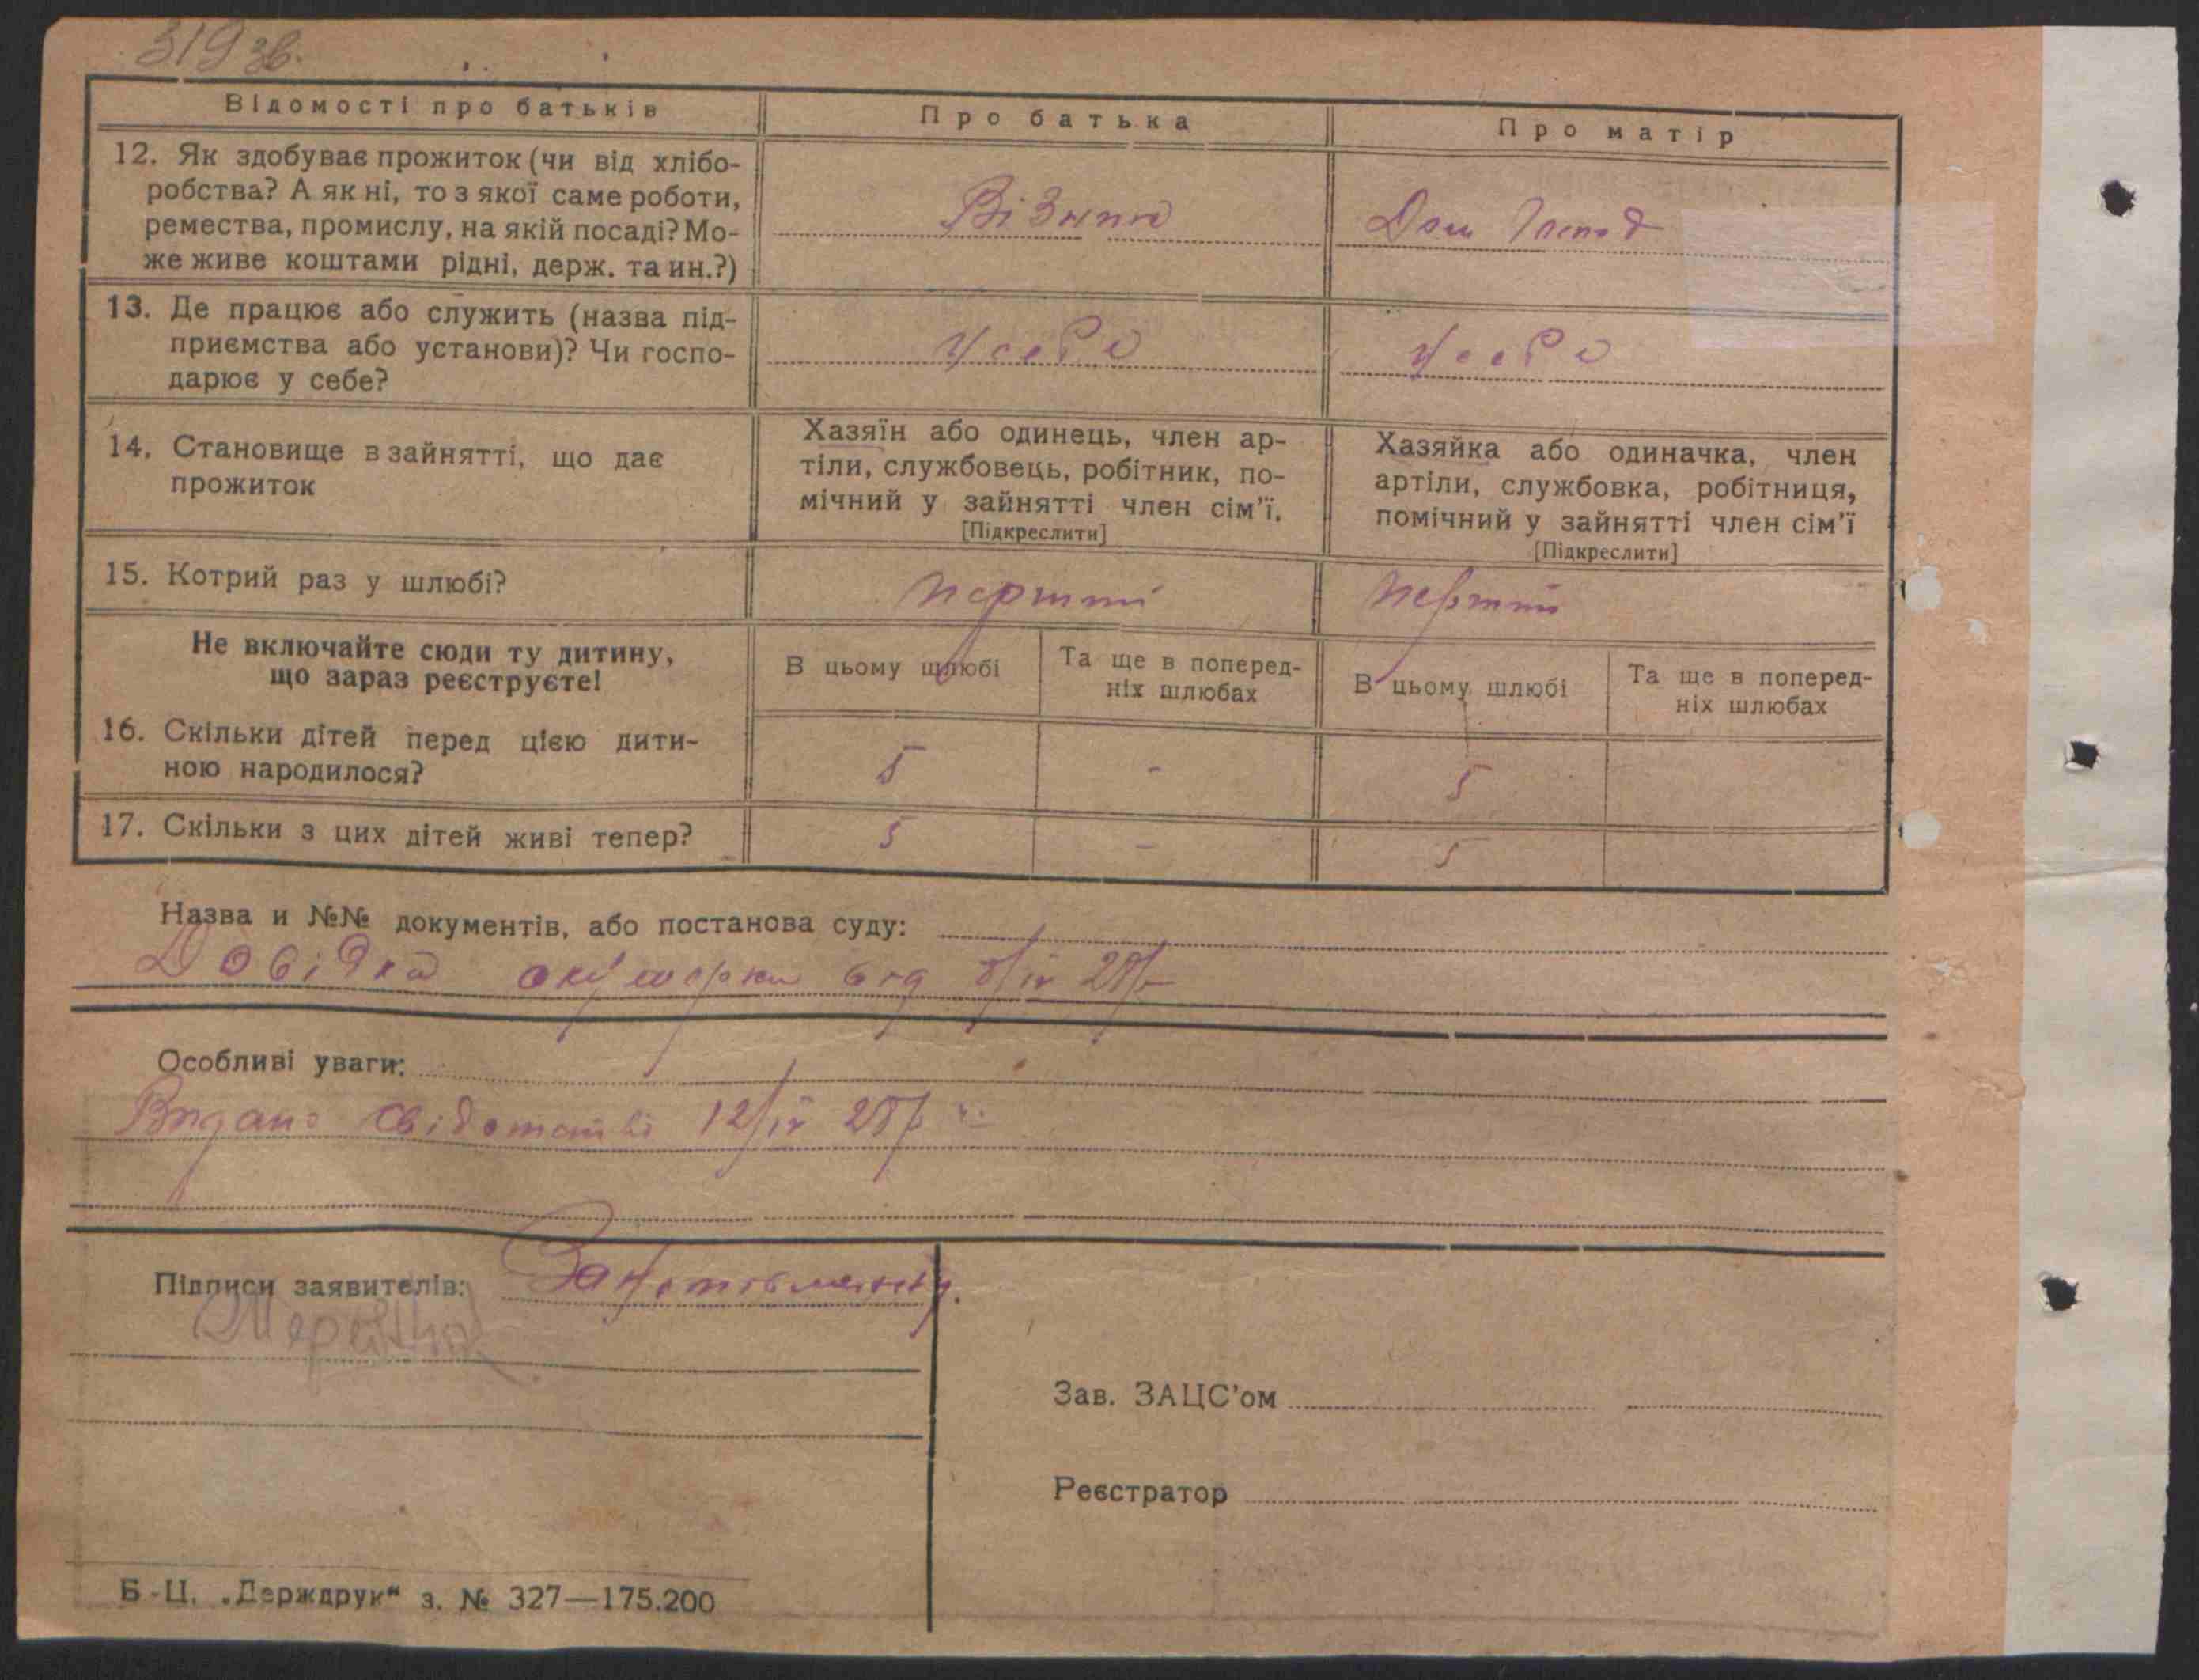 319 зв.
Відомості про батьків
Про батька
Про матір
12. Як здобуває прожиток (чи від хлібо-
робства? А як ні, то з якої саме роботи,
ремества, промислу, на якій посаді? Мо-
же живе коштами рідні, держ. та ин.?)
Візник
Дом господ
13. Де працює або служить (назва під-
приємства або установи)? Чи госпо-
дарює у себе?
у себе
у себе
14. Становище в зайнятті, що дає
прожиток
Хазяїн або одинець, член ар-
тіли, службовець, робітник, по-
мічний у зайнятті член сім'ї.
[Підкреслити]
Хазяйка або одиначка, член
артіли, службовка, робітниця,
помічний у зайнятті член сім'ї
[Підкреслити]
15. Котрий раз у шлюбі?
перший
перший
Не включайте сюди ту дитину,
що зараз реєструєте!
В цьому шлюбі
Та ще в поперед-
ніх шлюбах
В цьому шлюбі
Та ще в поперед-
ніх шлюбах
16. Скільки дітей перед цією дити-
ною народилося?
5
-
5
17. Скільки з цих дітей живі тепер?
5
-
5
Назва и №№ документів, або постанова суду:
Довідка акушерки від 8/IV 28р
Особливі уваги:
Видано свідотство 12/IV 28р
Підписи заявителів:
Зав. ЗАЦС'ом
Реєстратор
Б-Ц. „Держдрук“ з. № 327—175.200